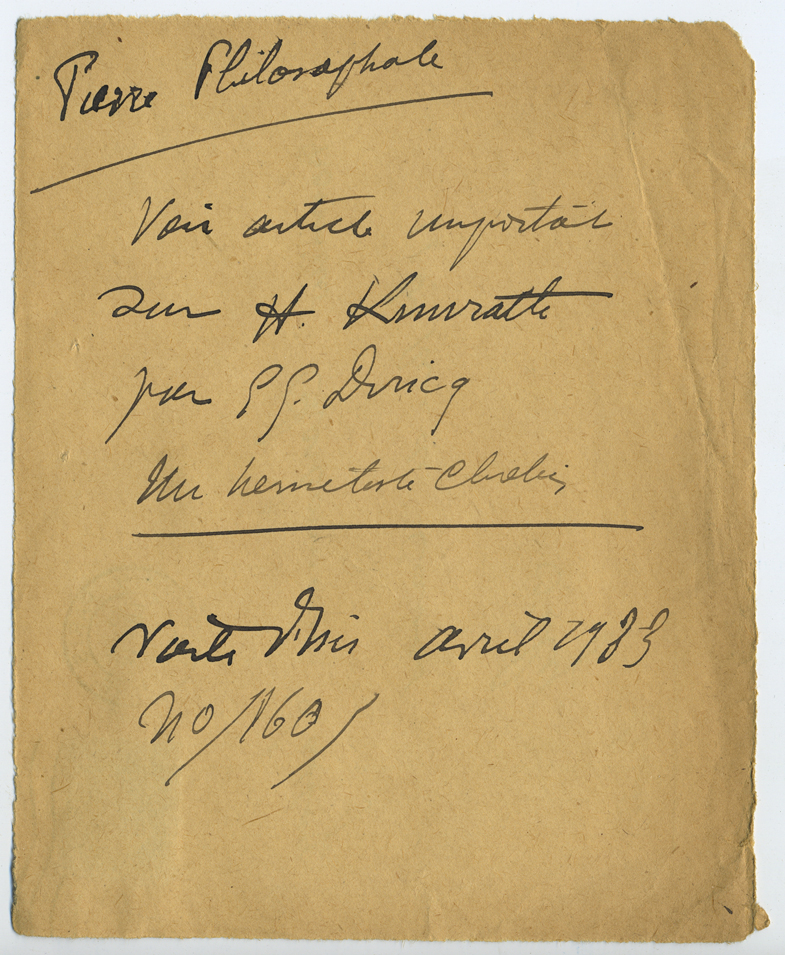 Pierre Philosophale
Voir article important
sur H. Kunrath
par
Un hermetiste
Voile d'Isis avril 1933
no 160